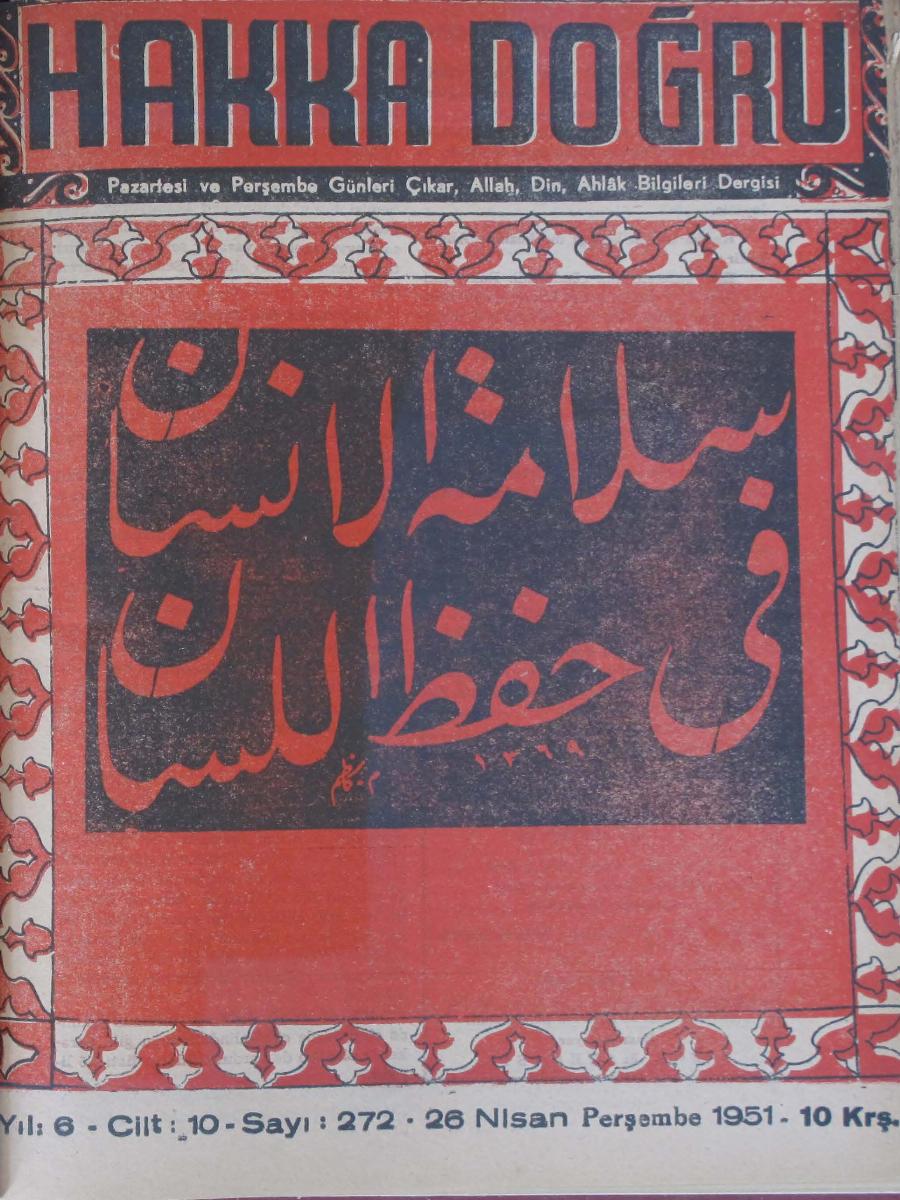 HAKKA DOĞRU
Pazartesi ve Perşembe Günleri Çıkar, Allah, Din, Ahlâk Bilgileri Dergisi
سلامة الانسان
فى حفظ اللسان
١٣٦٩
Yıl: 6 - Cilt: 10 - Sayı: 272 · 26 Nisan Perşembe 1951 - 10 Krş.